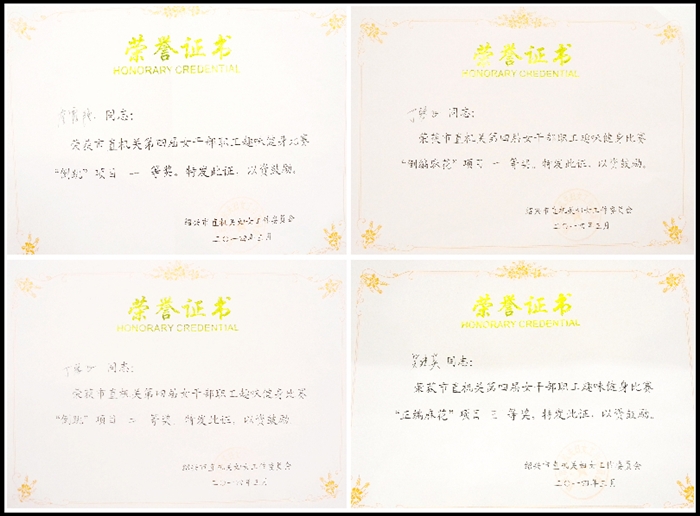 荣誉证书
HONORARY CREDENTIAL
同志:
荣获市直机关第四届女干部职工趣味健身比赛
“倒跑”项目 一 等奖。特发此证,以资鼓励。
绍兴市直机关妇女工作委员会
二〇一四年三月
荣誉证书
HONORARY CREDENTIAL
同志:
荣获市直机关第四届女干部职工趣味健身比赛
“倒编麻花”项目 一 等奖。特发此证,以资鼓励。
绍兴市直机关妇女工作委员会
二〇一四年三月
荣誉证书
HONORARY CREDENTIAL
同志:
荣获市直机关第四届女干部职工趣味健身比赛
“倒跑”项目 二 等奖。特发此证,以资鼓励。
绍兴市直机关妇女工作委员会
二〇一四年三月
荣誉证书
HONORARY CREDENTIAL
同志:
荣获市直机关第四届女干部职工趣味健身比赛
“正编麻花”项目 三 等奖。特发此证,以资鼓励。
绍兴市直机关妇女工作委员会
二〇一四年三月